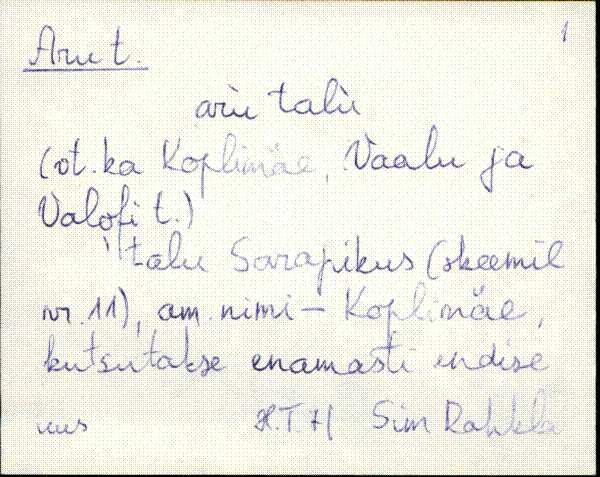 1
Aru t.
aru talu
(vt. ka Koplimäe, Vaalu ja
Valofi t.)
talu Sarapikus (skeemil
nr. 11), am. nimi – Koplimäe,
kutsutakse enamasti endise
H.T. Siim Rahkla